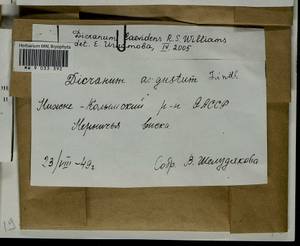 Dicranum laevidens R.S. Williams
det. E. Игнатова, IV 2005
Herbarium MW, Bryophyta
MW 9 033 392
Dicranum angustum Lindb
Нижне-Колымский р-н ЯАССР
Черничья Виска
23/VIII-49г
Собр. В. Шелудякова
19